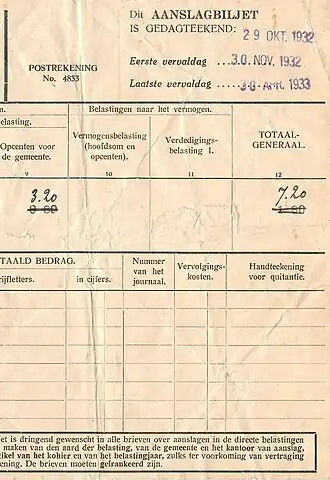 Dit AANSLAGBILJET
IS GEDAGTEEKEND:
29 OKT. 1932
Eerste vervaldag ...30. NOV. 1932
POSTREKENING
No. 4833
Laatste vervaldag .....30. APR. 1933
n.
elasting.
Belastingen naar het vermogen.
TOTAAL-
GENERAAL.
Opcenten voor
de gemeente.
Vermogensbelasting
(hoofdsom en
opcenten).
Verdedigings-
belasting I.
9 10 11 12
3.20 7.20
TAALD BEDRAG.
rijfletters. in cijfers.
Nummer
van het
journaal.
Vervolgings-
kosten.
Handteekening
voor quitantie.
et is dringend gewenscht in alle brieven over aanslagen in de directe belastingen
maken van den aard der belasting, van de gemeente en het kantoor van aanslag,
tikel van het kohier en van het belastingjaar, zulks ter voorkoming van vertraging
ening. De brieven moeten gefrankeerd zijn.